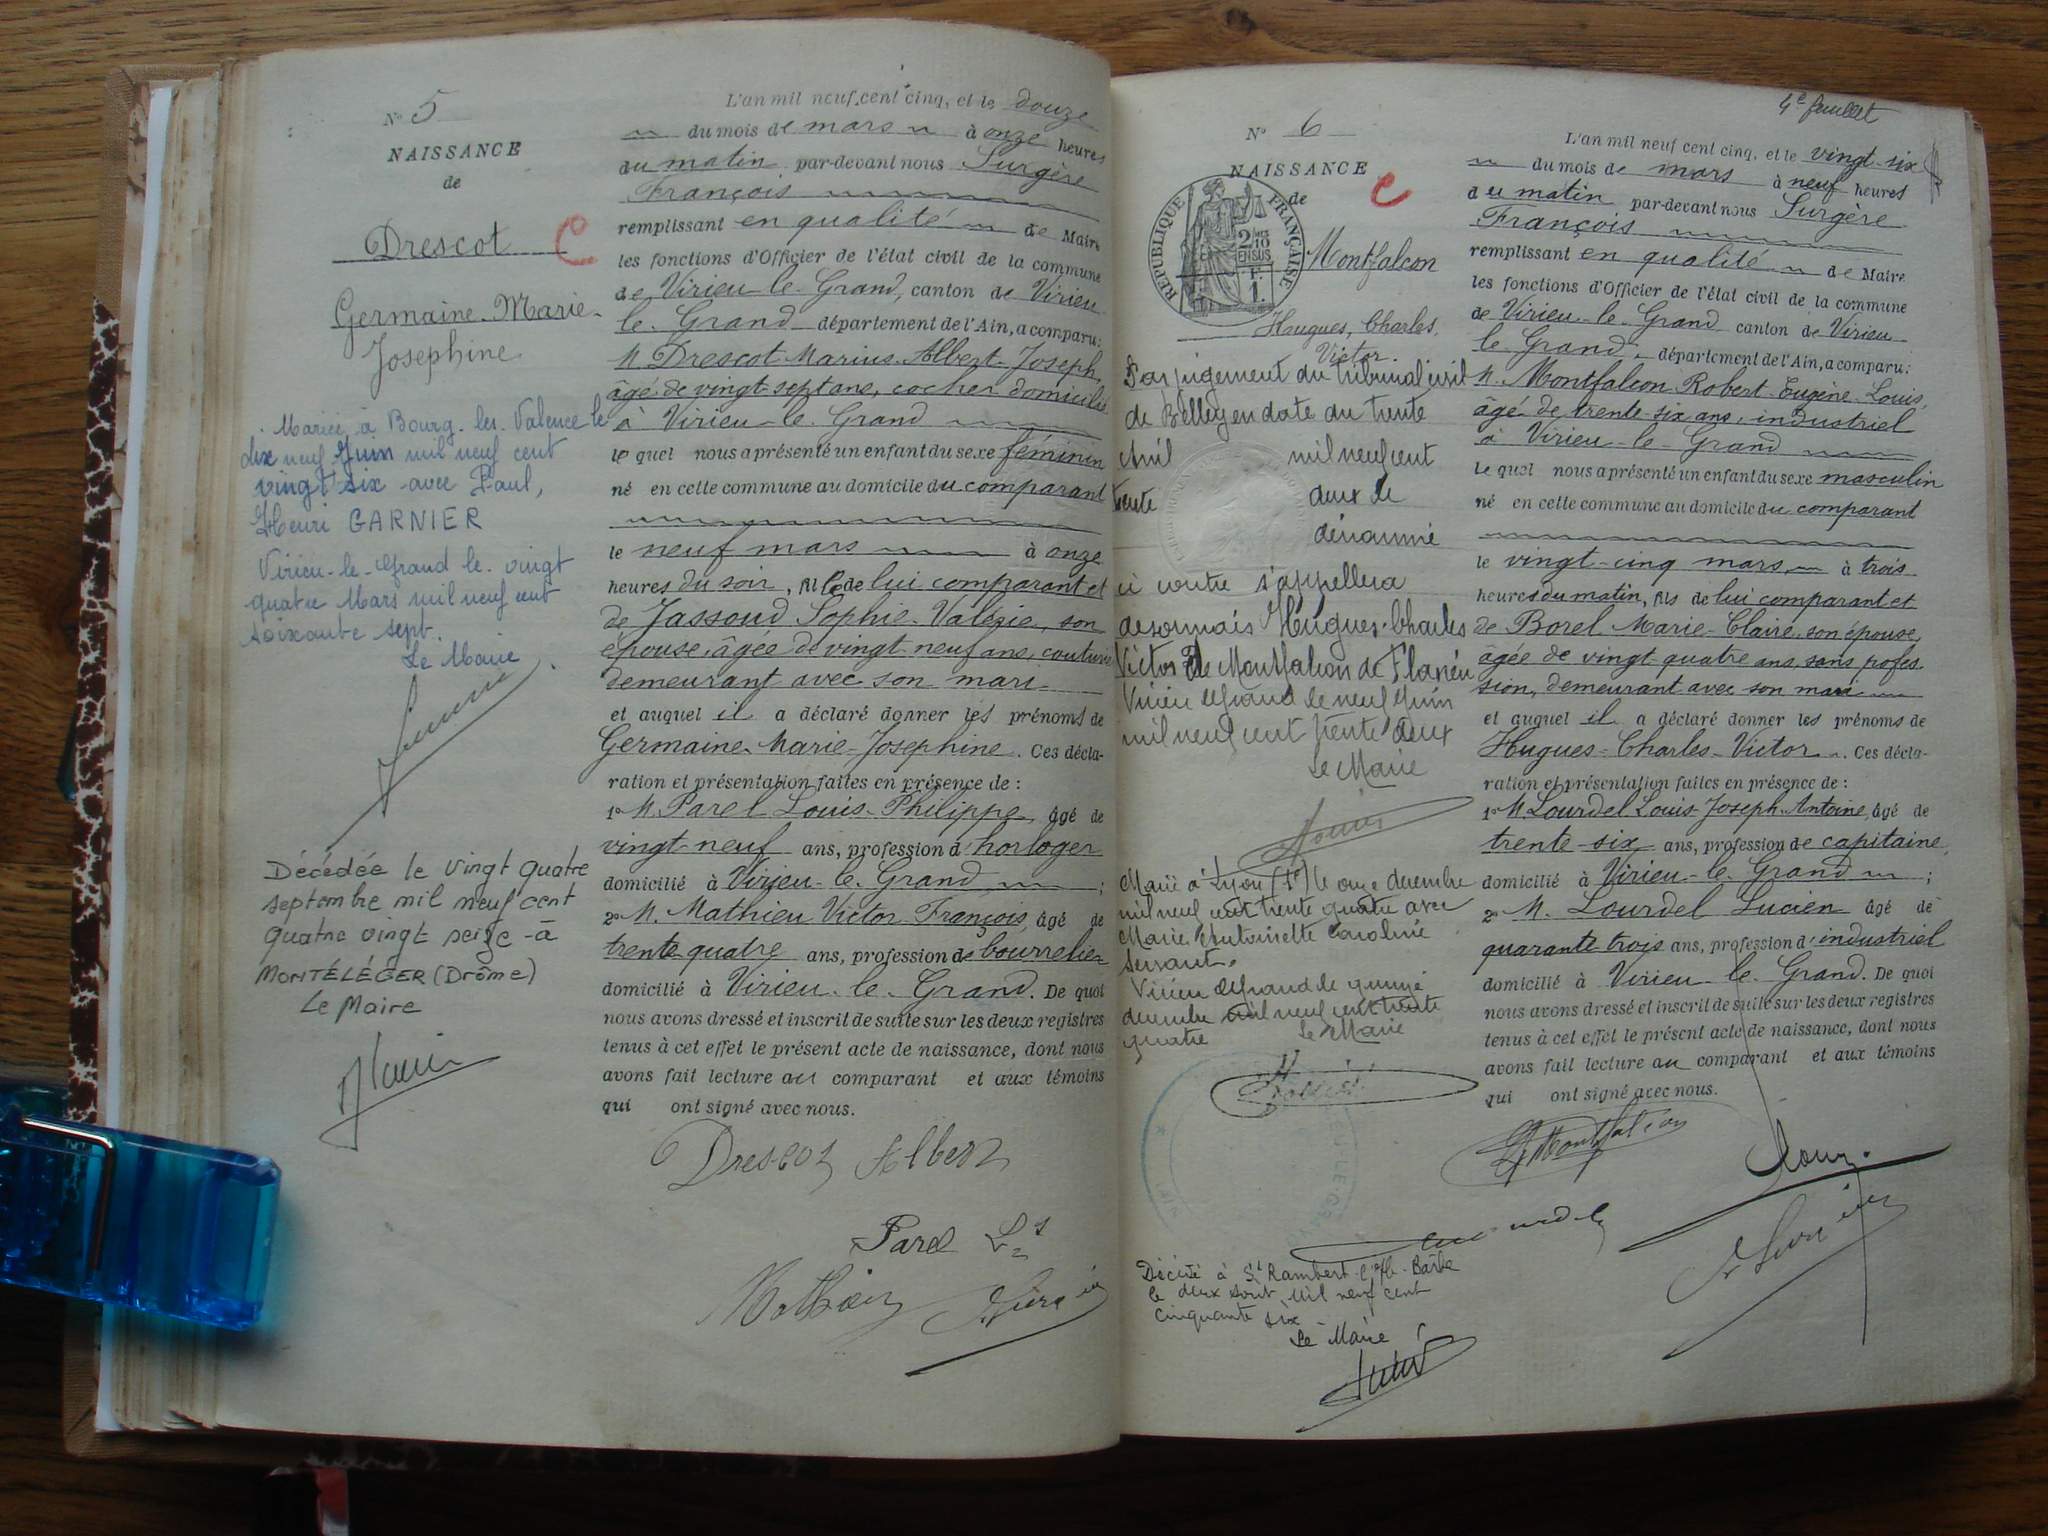 N° 5
NAISSANCE
de
Drescot C
Germaine-Marie-
Josephine
Mariée à Bourg-les-Valence le
dix neuf Juin mil neuf cent
vingt six avec Paul,
Henri GARNIER
Virieu-le-Grand le vingt
quatre Mars mil neuf cent
soixante sept.
Le Maire
Décédée le vingt quatre
septembre mil neuf cent
quatre vingt seize à
MONTÉLÉGER (Drôme)
Le Maire
L'an mil neuf cent cinq, et le douze
du mois de mars à onze heures
du matin par-devant nous Surgère
François
remplissant en qualité de Maire
les fonctions d'Officier de l'état civil de la commune
de Virieu-le-Grand, canton de Virieu-
le-Grand département de l'Ain, a comparu:
M. Drescot Marius-Albert-Joseph,
âgé de vingt-sept ans, cocher domicilié
à Virieu-le-Grand
lequel nous a présenté un enfant du sexe féminin
né en cette commune au domicile du comparant
le neuf mars à onze
heures du soir, fille de lui comparant et
de Jassoud Sophie-Valérie, son
épouse, âgée de vingt-neuf ans, couturière
demeurant avec son mari
et auquel il a déclaré donner les prénoms de
Germaine-Marie-Josephine. Ces décla-
ration et présentation faites en présence de :
1° M. Parel Louis-Philippe, âgé de
vingt-neuf ans, profession d'horloger
domicilié à Virieu-le-Grand ;
2° M. Mathieu Victor François, âgé de
trente quatre ans, profession de bourrelier
domicilié à Virieu-le-Grand. De quoi
nous avons dressé et inscrit de suite sur les deux registres
tenus à cet effet le présent acte de naissance, dont nous
avons fait lecture au comparant et aux témoins
qui ont signé avec nous.
Drescot Albert
Parel Ls
Mathieu
4e feuillet
N° 6
NAISSANCE
de C
RÉPUBLIQUE FRANÇAISE
2/10 EN SUS
F.
1.
Montfalcon
Hugues, Charles,
Victor.
Par jugement du tribunal civil
de Belley en date du trente
Avril mil neuf cent
trente deux le
dénommé
ci contre s'appellera
désormais Hugues-Charles
Victor de Montfalcon de Flaxieu
Virieu le Grand le neuf Juin
mil neuf cent trente deux
Le Maire
Marié à Lyon (1e) le onze décembre
mil neuf cent trente quatre avec
Marie Antoinette Caroline
Servant.
Virieu le Grand le quinze
décembre mil neuf cent trente
quatre Le Maire
Décédé à St Rambert-l'Ile-Barbe
le deux août mil neuf cent
cinquante six
Le Maire
L'an mil neuf cent cinq, et le vingt-six
du mois de mars à neuf heures
du matin par-devant nous Surgère
François
remplissant en qualité de Maire
les fonctions d'Officier de l'état civil de la commune
de Virieu-le-Grand canton de Virieu-
le-Grand, département de l'Ain, a comparu:
M. Montfalcon Robert-Eugène-Louis,
âgé de trente-six ans, industriel
à Virieu-le-Grand
lequel nous a présenté un enfant du sexe masculin
né en cette commune au domicile du comparant
le vingt-cinq mars, à trois
heures du matin, fils de lui comparant et
de Borel Marie-Claire, son épouse,
âgée de vingt-quatre ans, sans profes-
sion, demeurant avec son mari
et auquel il a déclaré donner les prénoms de
Hugues-Charles-Victor. Ces décla-
ration et présentation faites en présence de :
1° M. Lourdel Louis Joseph-Antoine, âgé de
trente-six ans, profession de capitaine,
domicilié à Virieu-le-Grand ;
2° M. Lourdel Lucien âgé de
quarante-trois ans, profession d'industriel
domicilié à Virieu-le-Grand. De quoi
nous avons dressé et inscrit de suite sur les deux registres
tenus à cet effet le présent acte de naissance, dont nous
avons fait lecture au comparant et aux témoins
qui ont signé avec nous.
Montfalcon